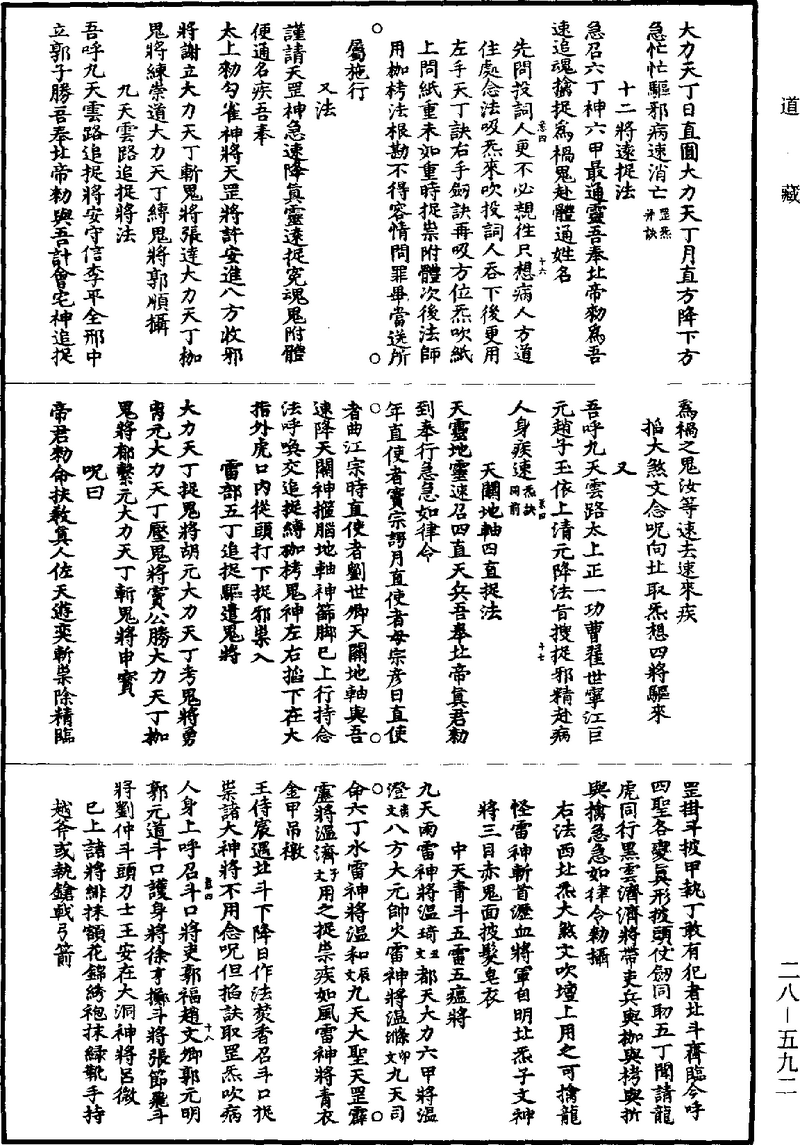 道藏
大力天丁日直圓大力天丁月直方降下方
急忙忙驅邪病速消亡罡炁斗訣
十二將速捉法
急召六丁神六甲最通靈吾奉北帝勑爲吾
速追魂擒捉爲禍鬼赴體通姓名
先問投詞人更不必親往只想病人方道
住處念法吸炁來吹投詞人吞下後更用
左手天丁訣右手劒訣再吸方位炁吹紙
上問紙重未如重時捉祟附體次後法師
用枷栲法根勘不得容情問罪畢當送所
屬施行
又法
謹請天罡神急速降真靈速捉冤魂鬼附體
便通名疾吾奉
太上勑勾雀神將天罡將許安進八方收邪
將謝立大力天丁斬鬼將張達大力天丁枷
鬼將練崇道大力天丁縛鬼將郭順攝
九天雲路追捉將法
吾呼九天雲路追捉將安守信李平全邢中
立郭子勝吾奉北帝勑與吾計會宅神追捉
爲禍之鬼汝等速去速來疾
掐大煞文念呪向北取炁想四將驅來
又
吾呼九天雲路太上正一功曹翟世寧江巨
元趙子玉依上清元降法旨搜捉邪精赴病
人身疾速炁訣同前
天關地軸四直捉法
天靈地靈速召四直天兵吾奉北帝真君勑
到奉行急急如律令
年直使者竇宗諤月直使者母宗彥日直使
者曲江宗時直使者劉世卿天關地軸與吾
速降天關神摧腦地軸神篩脚已上行持念
法呼喚交追捉縛枷栲鬼神左右掐下在大
指外虎口內從頭打下捉邪祟入
雷部五丁追捉驅遣鬼將
大力天丁捉鬼將胡元大力天丁考鬼將勇
男元大力天丁壓鬼將竇公勝大力天丁枷
鬼將都繫元大力天丁斬鬼將申寶
呪曰
帝君勑命扶教真人佐天遊奕斬祟除精臨
罡掛斗披甲執丁敢有犯者北斗齊臨今呼
四聖各變真形披頭仗劒同助五丁聞請龍
虎同行黑雲濟濟將帶吏兵與枷與栲與折
與擒急急如律令勑攝
右法西北炁大煞文吹壇上用之可擒龍
怪雷神斬首瀝血將軍自明北炁子文神
將三目赤鬼面披髮皂衣
中天青斗五雷五瘟將
九天雨雷神將溫琦丑文都天大力六甲將溫
澄寅文八方大元帥火雷神將溫滌卯文九天司
命六丁水雷神將溫和辰文九天大聖天罡霹
靂將溫濟子文用之捉祟疾如風雷神將青衣
金甲吊墩
王侍宸遇北斗下降日作法焚香召斗口捉
祟諸大神將不用念呪但掐訣取罡炁吹病
人身上呼召斗口將吏郭福趙文卿郭元明
郭元道斗口護身將徐亨擲斗將張節飛斗
將劉仲斗頭力士王安在大洞神將呂微
已上諸將緋抹額花錦綉袍抹綠靴手持
越斧或執鎗戟弓箭
二八－五九二